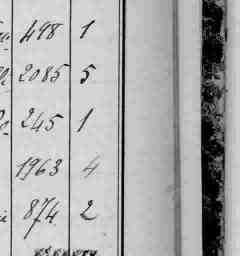 498 1
2085 5
245 1
1963 4
874 2